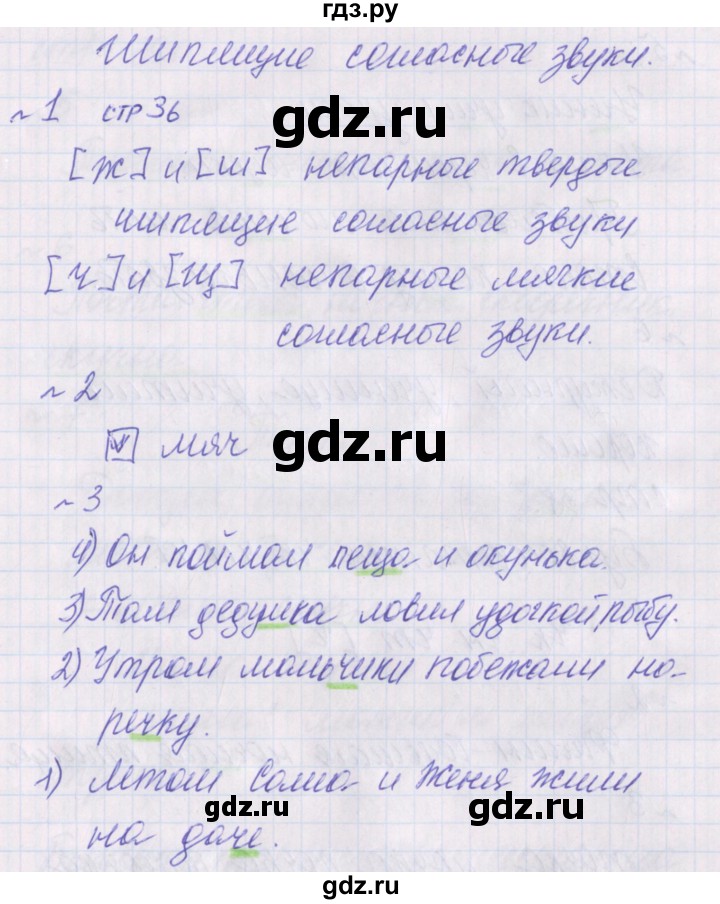 гдз.ру
Шипящие согласные звуки.
~ 1 стр 36
gdz.ru
[ж] и [ш] непарные твердые
шипящие согласные звуки
[ч] и [щ] непарные мягкие
согласные звуки.
~ 2
gdz.ru
мяч
~ 3
4) Он поймал леща и окунька.
3) Там дедушка ловил удочкой рыбу.
2) Утром мальчики побежали на
речку.
1) Летом Саша и Женя жили
gdz.ru
gdz.ru
на даче.
gdz.ru